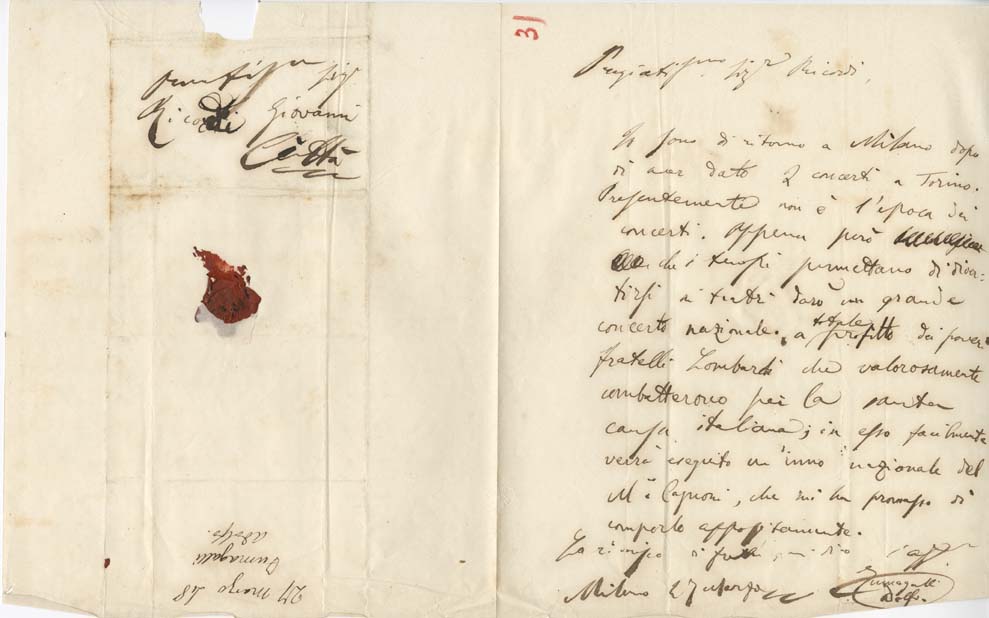 sigr
Ricordi Giovanni
Città
27 Marzo 48
Fumagalli
Adolfo.
3)
Pregiatissmo sigr Ricordi,
sono di ritorno a Milano dopo
di aver dato 2 concerti a Torino.
Presentemente non è l'epoca dei
concerti. Appena però
che i tempi permettano di diver-
tirsi ai teatri darò un grande
concerto nazionale a totale profitto dei poveri
fratelli Lombardi che valorosamente
combatterono per la santa
causa italiana; in esso facilmente
verrà eseguito un inno nazionale del
M.o Caproni, che mi ha promesso di
comporlo appositamente.
La
Milano 27 Marzo
Fumagalli
Adolfo.